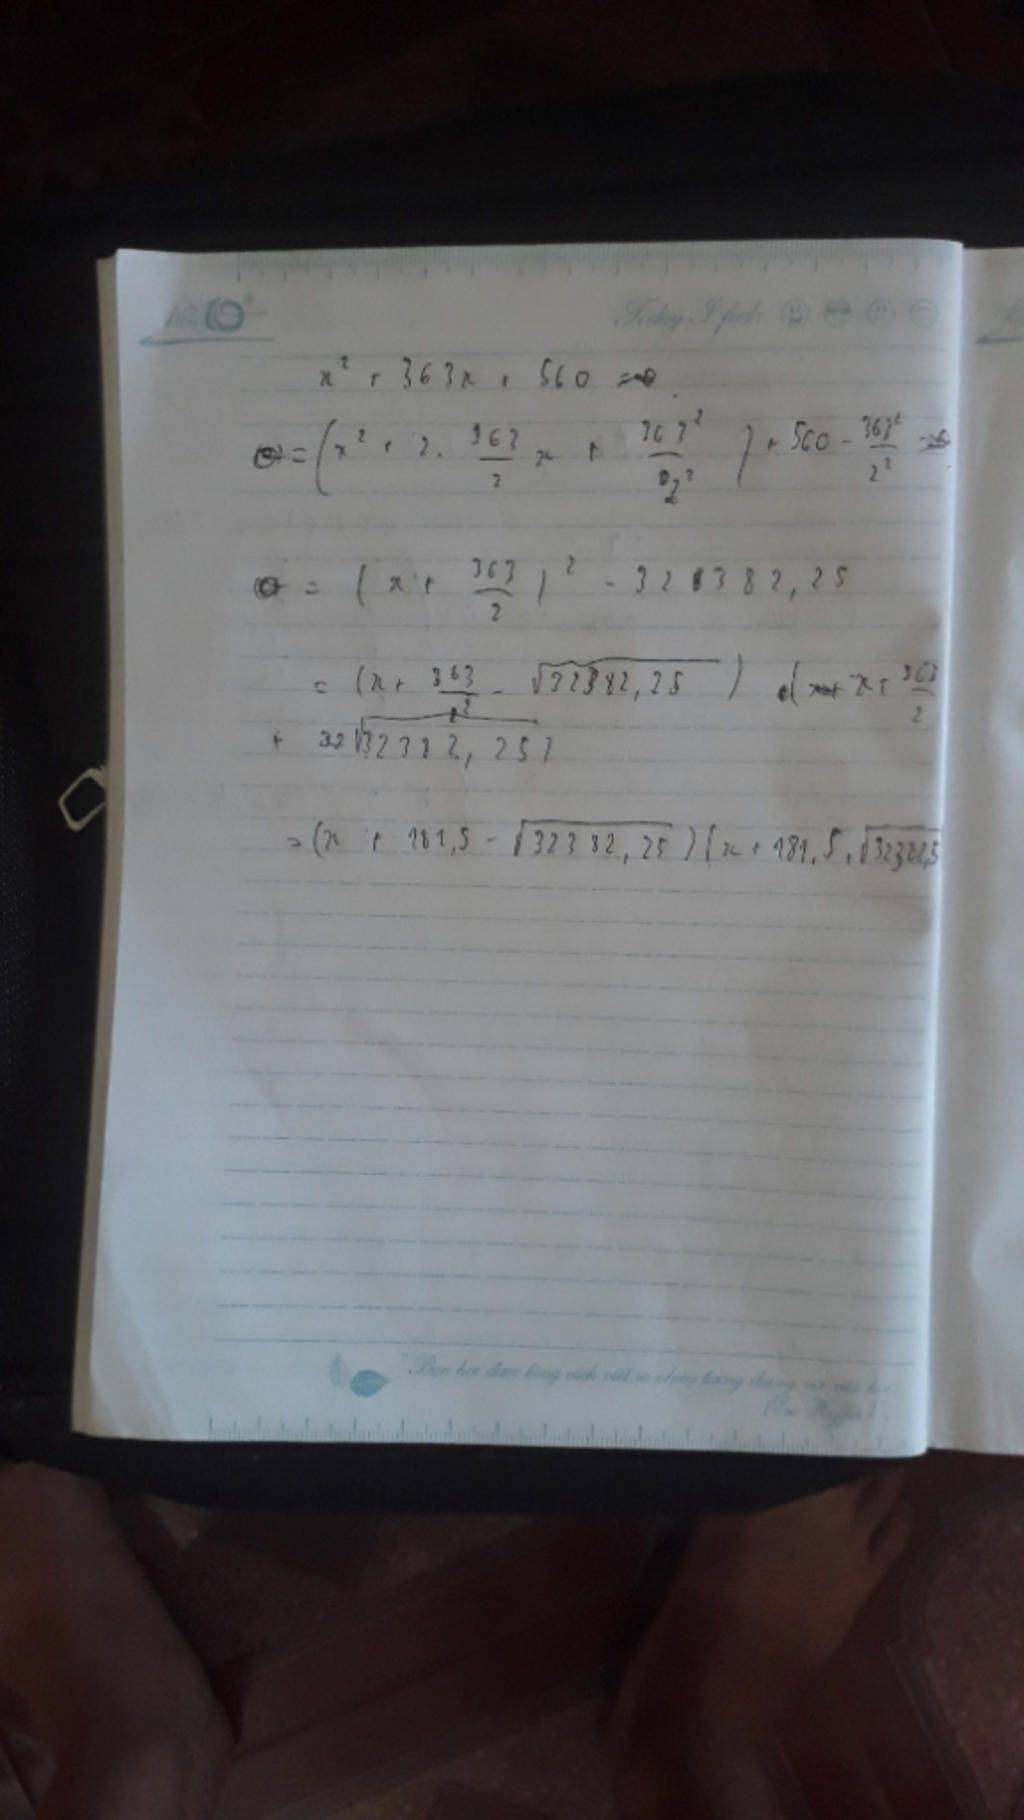 Today I feel:
x² + 363x + 560
= (x² + 2. 363/2 x + 363²/2²) + 560 - 363²/2²
= (x + 363/2)² - 32382,25
= (x + 363/2 - √32382,25) (x + 363/2
+ √32382,25)
= (x + 181,5 - √32382,25) (x + 181,5 + √32382,5